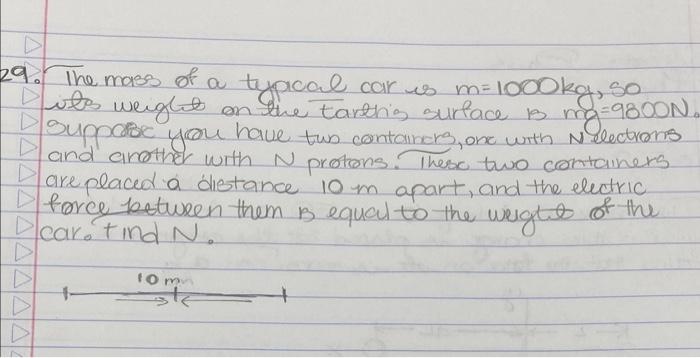 29. The mass of a typical car is m=1000kg, so
its weight on the Earth's surface is mg=9800N.
Suppose you have two containers, one with N electrons
and another with N protons. These two containers
are placed a distance 10 m apart, and the electric
force between them is equal to the weight of the
car. Find N.
10 m